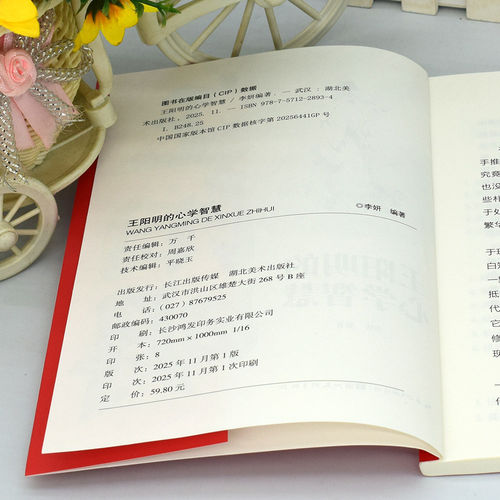 图书在版编目(CIP)数据
王阳明的心学智慧 / 李妍编著. — 武汉：湖北美
术出版社，2025. 11. — ISBN 978-7-5712-2893-4
Ⅰ. B248.25
中国国家版本馆 CIP 数据核字第 20256441GP 号
王阳明的心学智慧
WANG YANGMING DE XINXUE ZHIHUI
◎李妍 编著
责任编辑：万 千
责任校对：周嘉欣
技术编辑：平晓玉
出版发行：长江出版传媒 湖北美术出版社
地 址：武汉市洪山区雄楚大街 268 号 B 座
电 话：(027) 87679525
邮政编码：430070
印 刷：长沙鸿发印务实业有限公司
开 本：720mm×1000mm 1/16
印 张：8
版 次：2025 年 11 月第 1 版
印 次：2025 年 11 月第 1 次印刷
定 价：59.80 元
手推
究竟
也没
些柞
于如
繁华
于玛
白苑
一室
抵
代
它
修
现